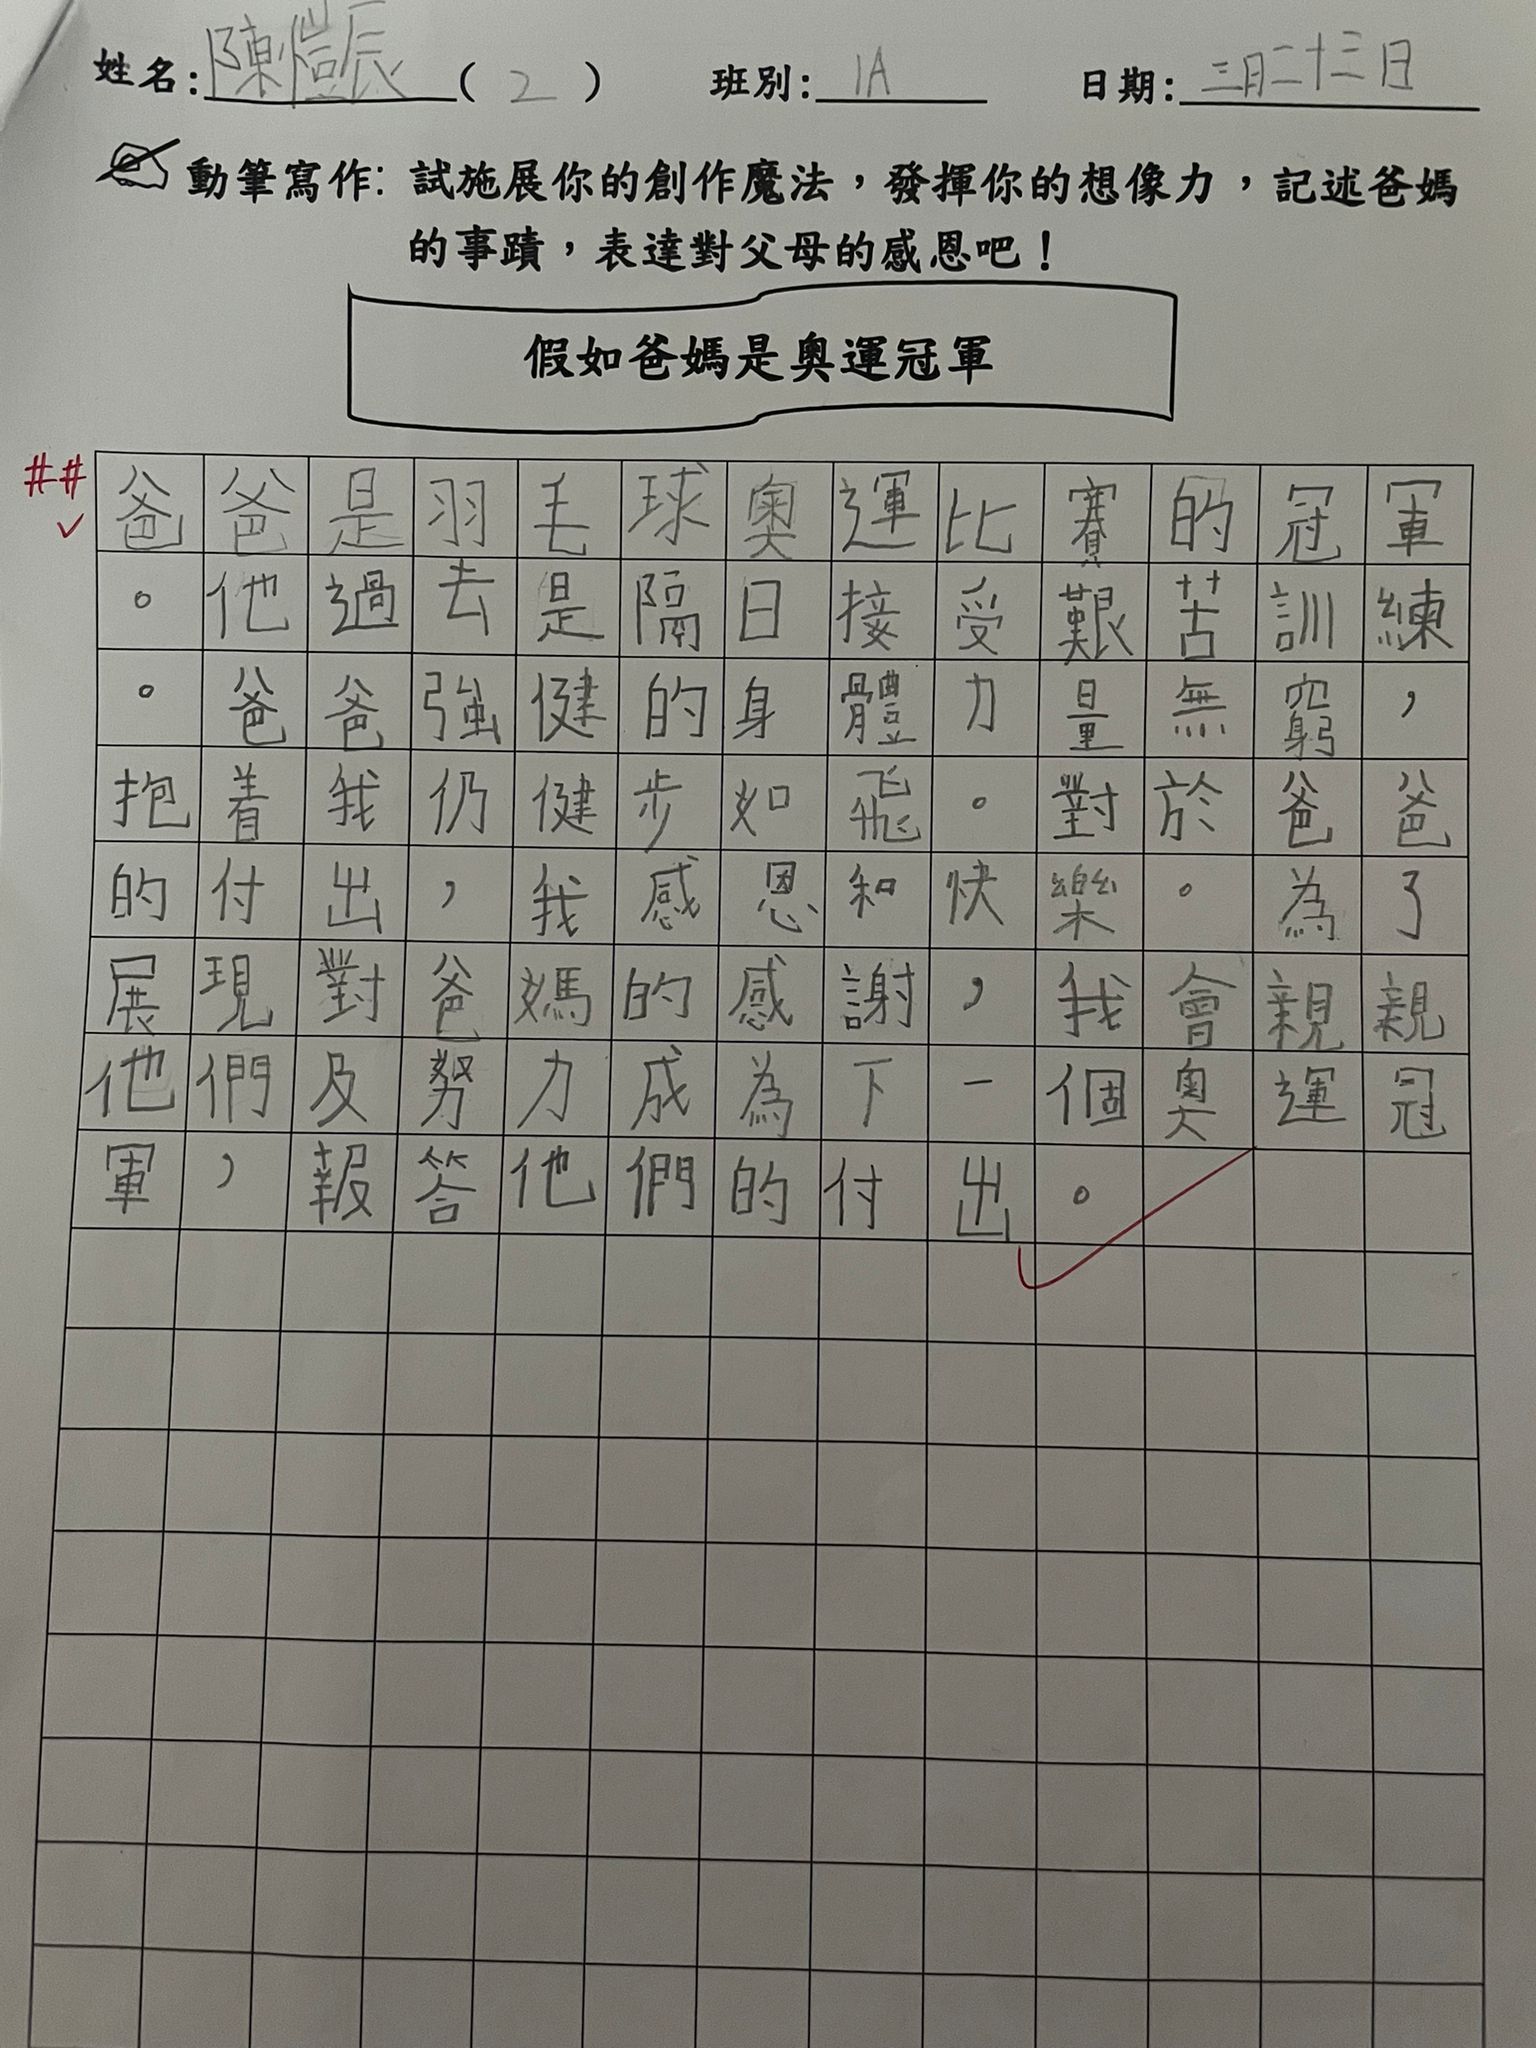 姓名:陳愷辰(2) 班別:1A 日期:三月二十三日
動筆寫作:試施展你的創作魔法，發揮你的想像力，記述爸媽
的事蹟，表達對父母的感恩吧！
假如爸媽是奧運冠軍
##
爸爸是羽毛球奧運比賽的冠軍
。他過去是隔日接受艱苦訓練
。爸爸強健的身體力量無窮，
抱着我仍健步如飛。對於爸爸
的付出，我感恩和快樂。為了
展現對爸媽的感謝，我會親親
他們及努力成為下一個奧運冠
軍，報答他們的付出。